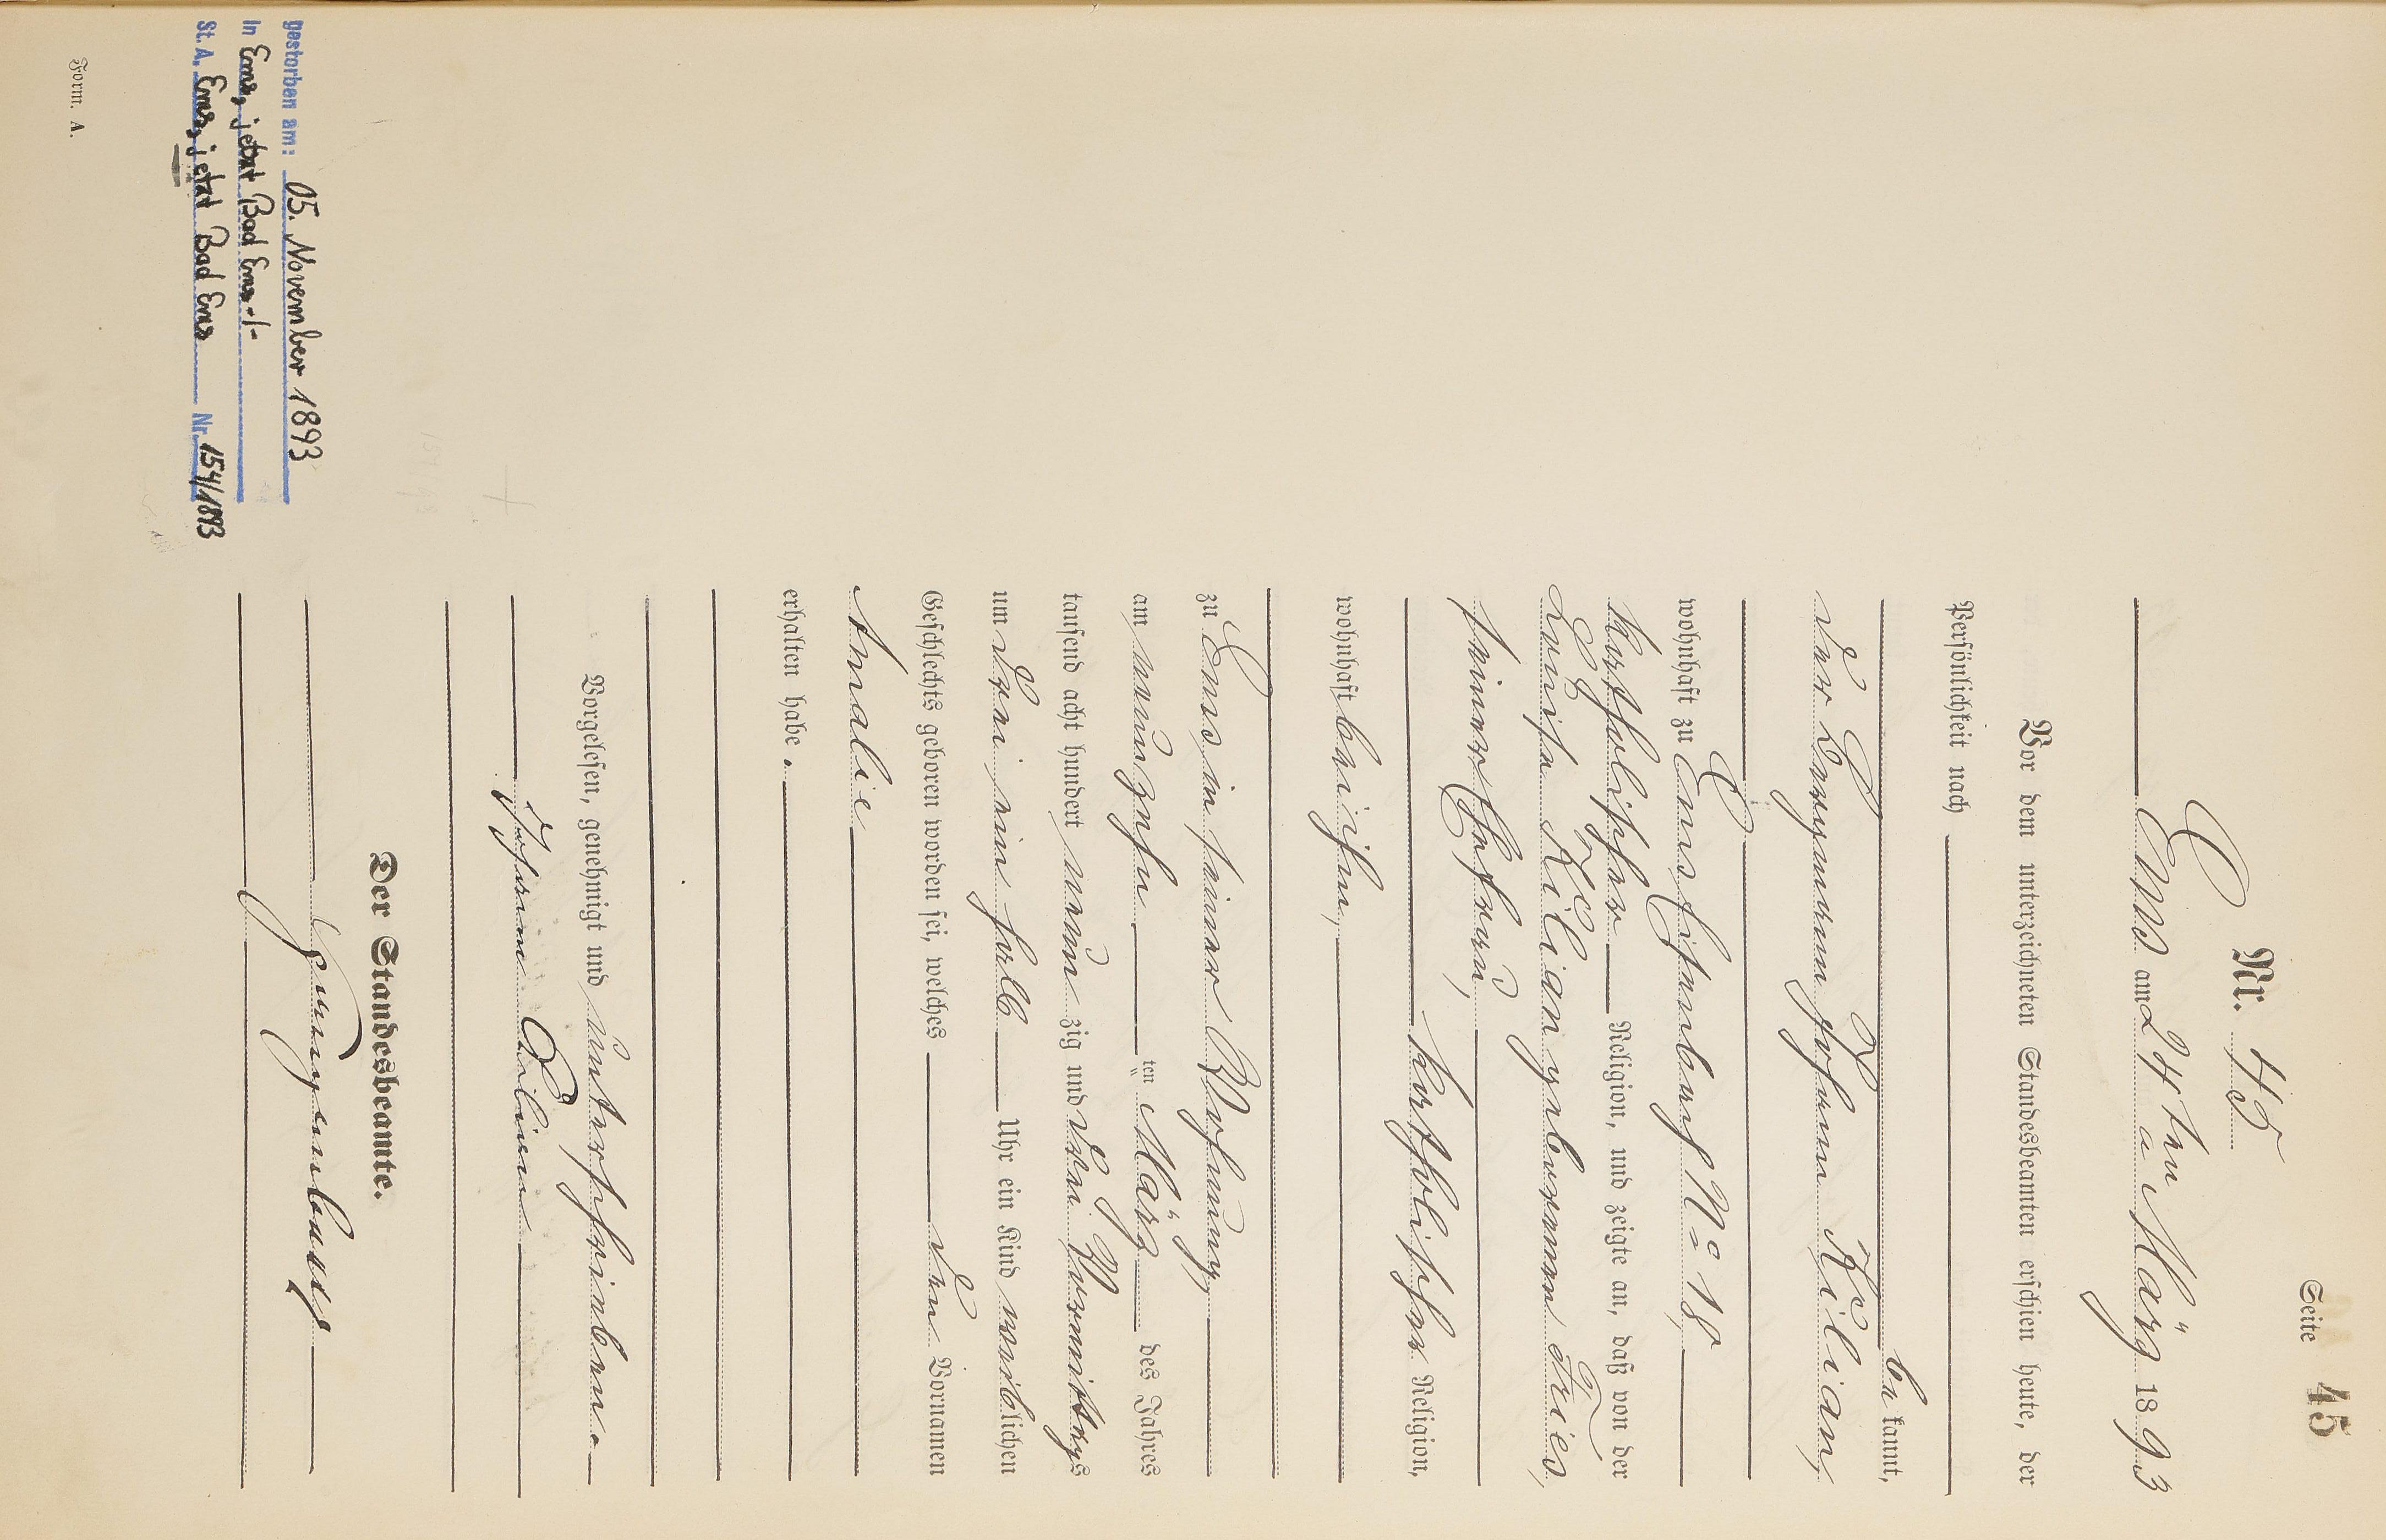 Seite 45
Nr. 45
Ems am 24ten März 1893
Vor dem unterzeichneten Standesbeamten erschien heute, der
Persönlichkeit nach
be kannt,
der Bergmann Johann Kilian,
wohnhaft zu Ems, Eisenbach No 18
katholischer Religion, und zeigte an, daß von der
Luise Kilian geborenen Fries,
seiner Ehefrau,
katholischer Religion,
wohnhaft bei ihm,
zu Ems in seiner Wohnung,
am neunzehn ten März des Jahres
tausend acht hundert neun zig und drei Vormittags
um drei ein halb Uhr ein Kind weiblichen
Geschlechts geboren worden sei, welches den Vornamen
Amalie
erhalten habe.
Vorgelesen, genehmigt und unterschrieben.
Johann Kilian
Der Standesbeamte.
gestorben am: 05. November 1893
in Ems, jetzt Bad Ems -/-
St. A. Ems, jetzt Bad Ems Nr. 154/1893
Form. A.